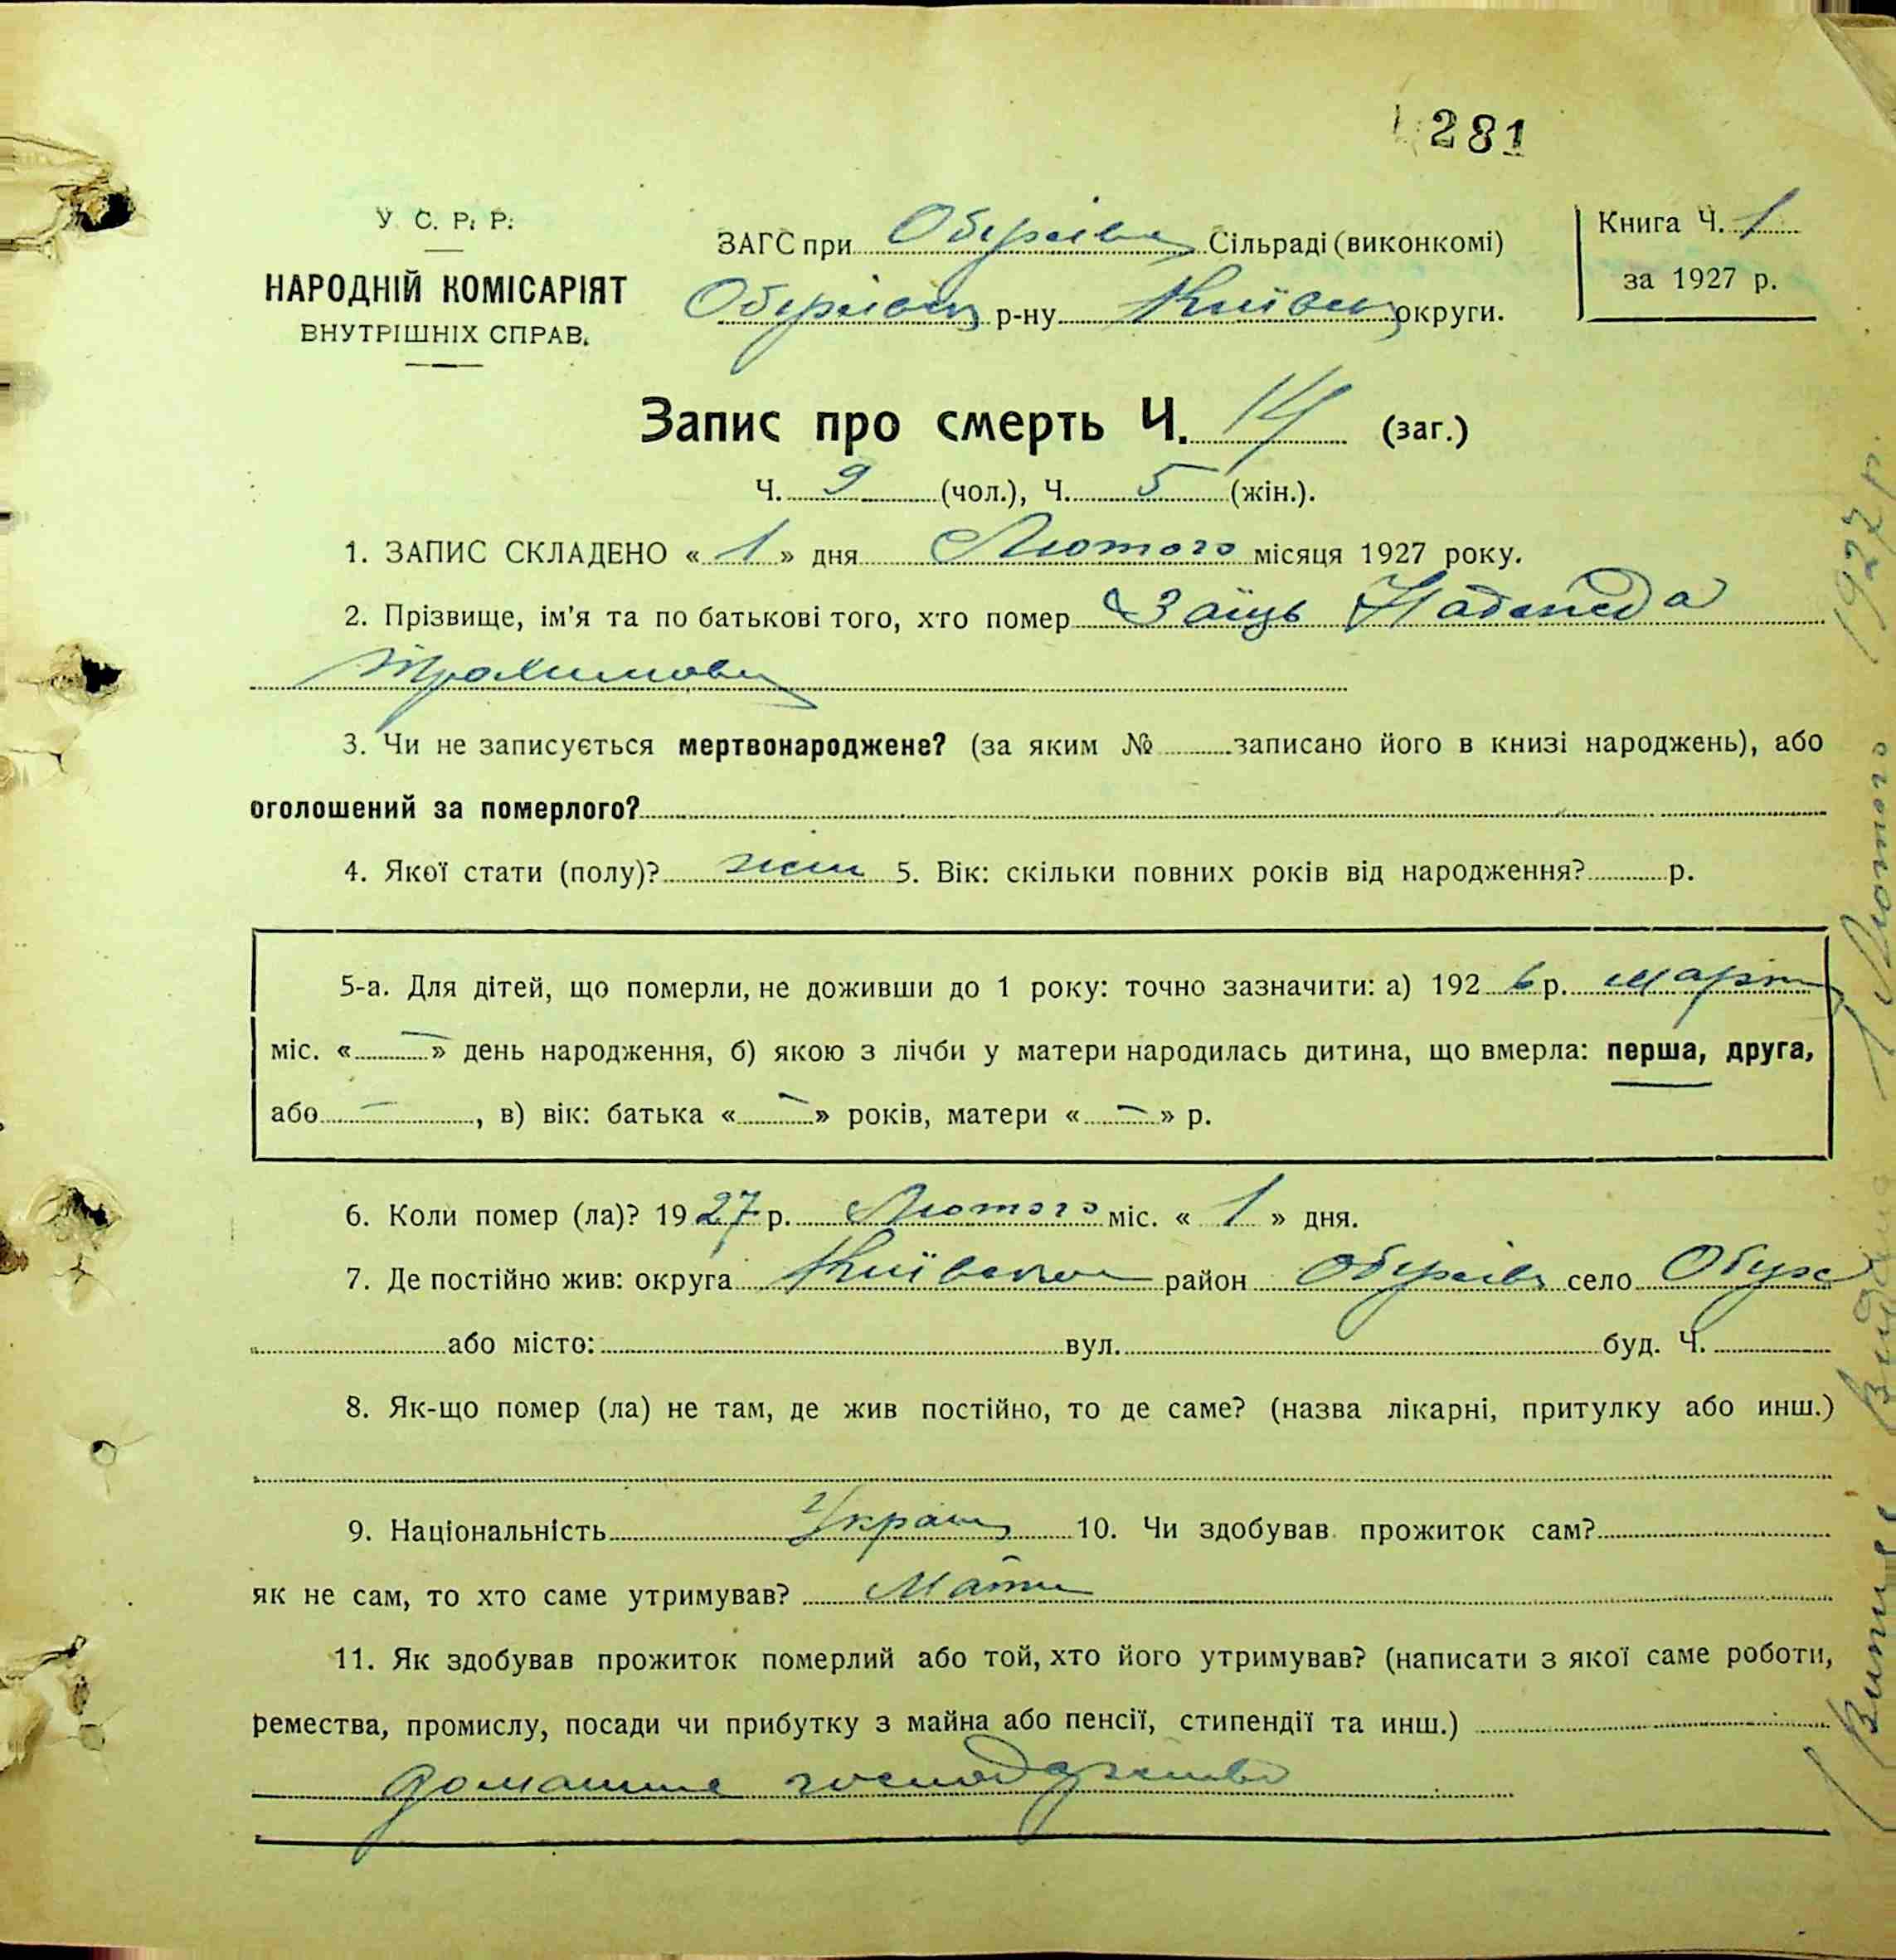 281
У. С. Р. Р.
НАРОДНІЙ КОМІСАРІЯТ
ВНУТРІШНІХ СПРАВ.
ЗАГС при Обухівськ Сільраді (виконкомі)
Обухівськ р-ну Київськ округи.
Книга Ч. 1
за 1927 р.
Запис про смерть Ч. 14 (заг.)
Ч. 9 (чол.), Ч. 5 (жін.).
1. ЗАПИС СКЛАДЕНО « 1 » дня Лютого місяця 1927 року.
2. Прізвище, ім'я та по батькові того, хто помер Заїць Надежда
Трохимовн
3. Чи не записується мертвонароджене? (за яким № записано його в книзі народжень), або
оголошений за померлого?
4. Якої стати (полу)? жін 5. Вік: скільки повних років від народження? р.
5-а. Для дітей, що померли, не доживши до 1 року: точно зазначити: а) 1926 р. март
міс. « — » день народження, б) якою з лічби у матери народилась дитина, що вмерла: перша, друга,
або —, в) вік: батька « — » років, матери « — » р.
6. Коли помер (ла)? 1927 р. Лютого міс. « 1 » дня.
7. Де постійно жив: округа Київська район Обухівськ село Обухів
або місто: вул. буд. Ч.
8. Як-що помер (ла) не там, де жив постійно, то де саме? (назва лікарні, притулку або инш.)
9. Національність Україн 10. Чи здобував прожиток сам?
як не сам, то хто саме утримував? Мати
11. Як здобував прожиток померлий або той, хто його утримував? (написати з якої саме роботи,
ремества, промислу, посади чи прибутку з майна або пенсії, стипендії та инш.)
домашнє господарство
Видано 1 Лютого 1927 р.